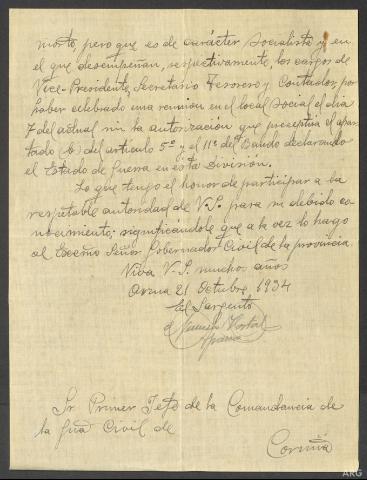 morto, pero que es de carácter socialista y en
el que desempeñan, respectivamente, los cargos de
Vice-Presidente, Secretario Tesorero y Contador, por
haber celebrado una reunión en el local social el día
7 del actual sin la autorización que preceptúa el apar-
tado (b) del artículo 5º y el 11º del Bando declarando
el Estado de Guerra en esta división.
Lo que tengo el honor de participar a la
respetable autoridad de V.S. para su debido co-
nocimiento; significándole que a la vez lo hago
al Excmo Señor Gobernador Civil de la provincia.
Viva V.S. muchos años
21 Octubre 1934
El Sargento
Sr Primer Jefe de la Comandancia de
la Gua Civil de
Coruña
ARG